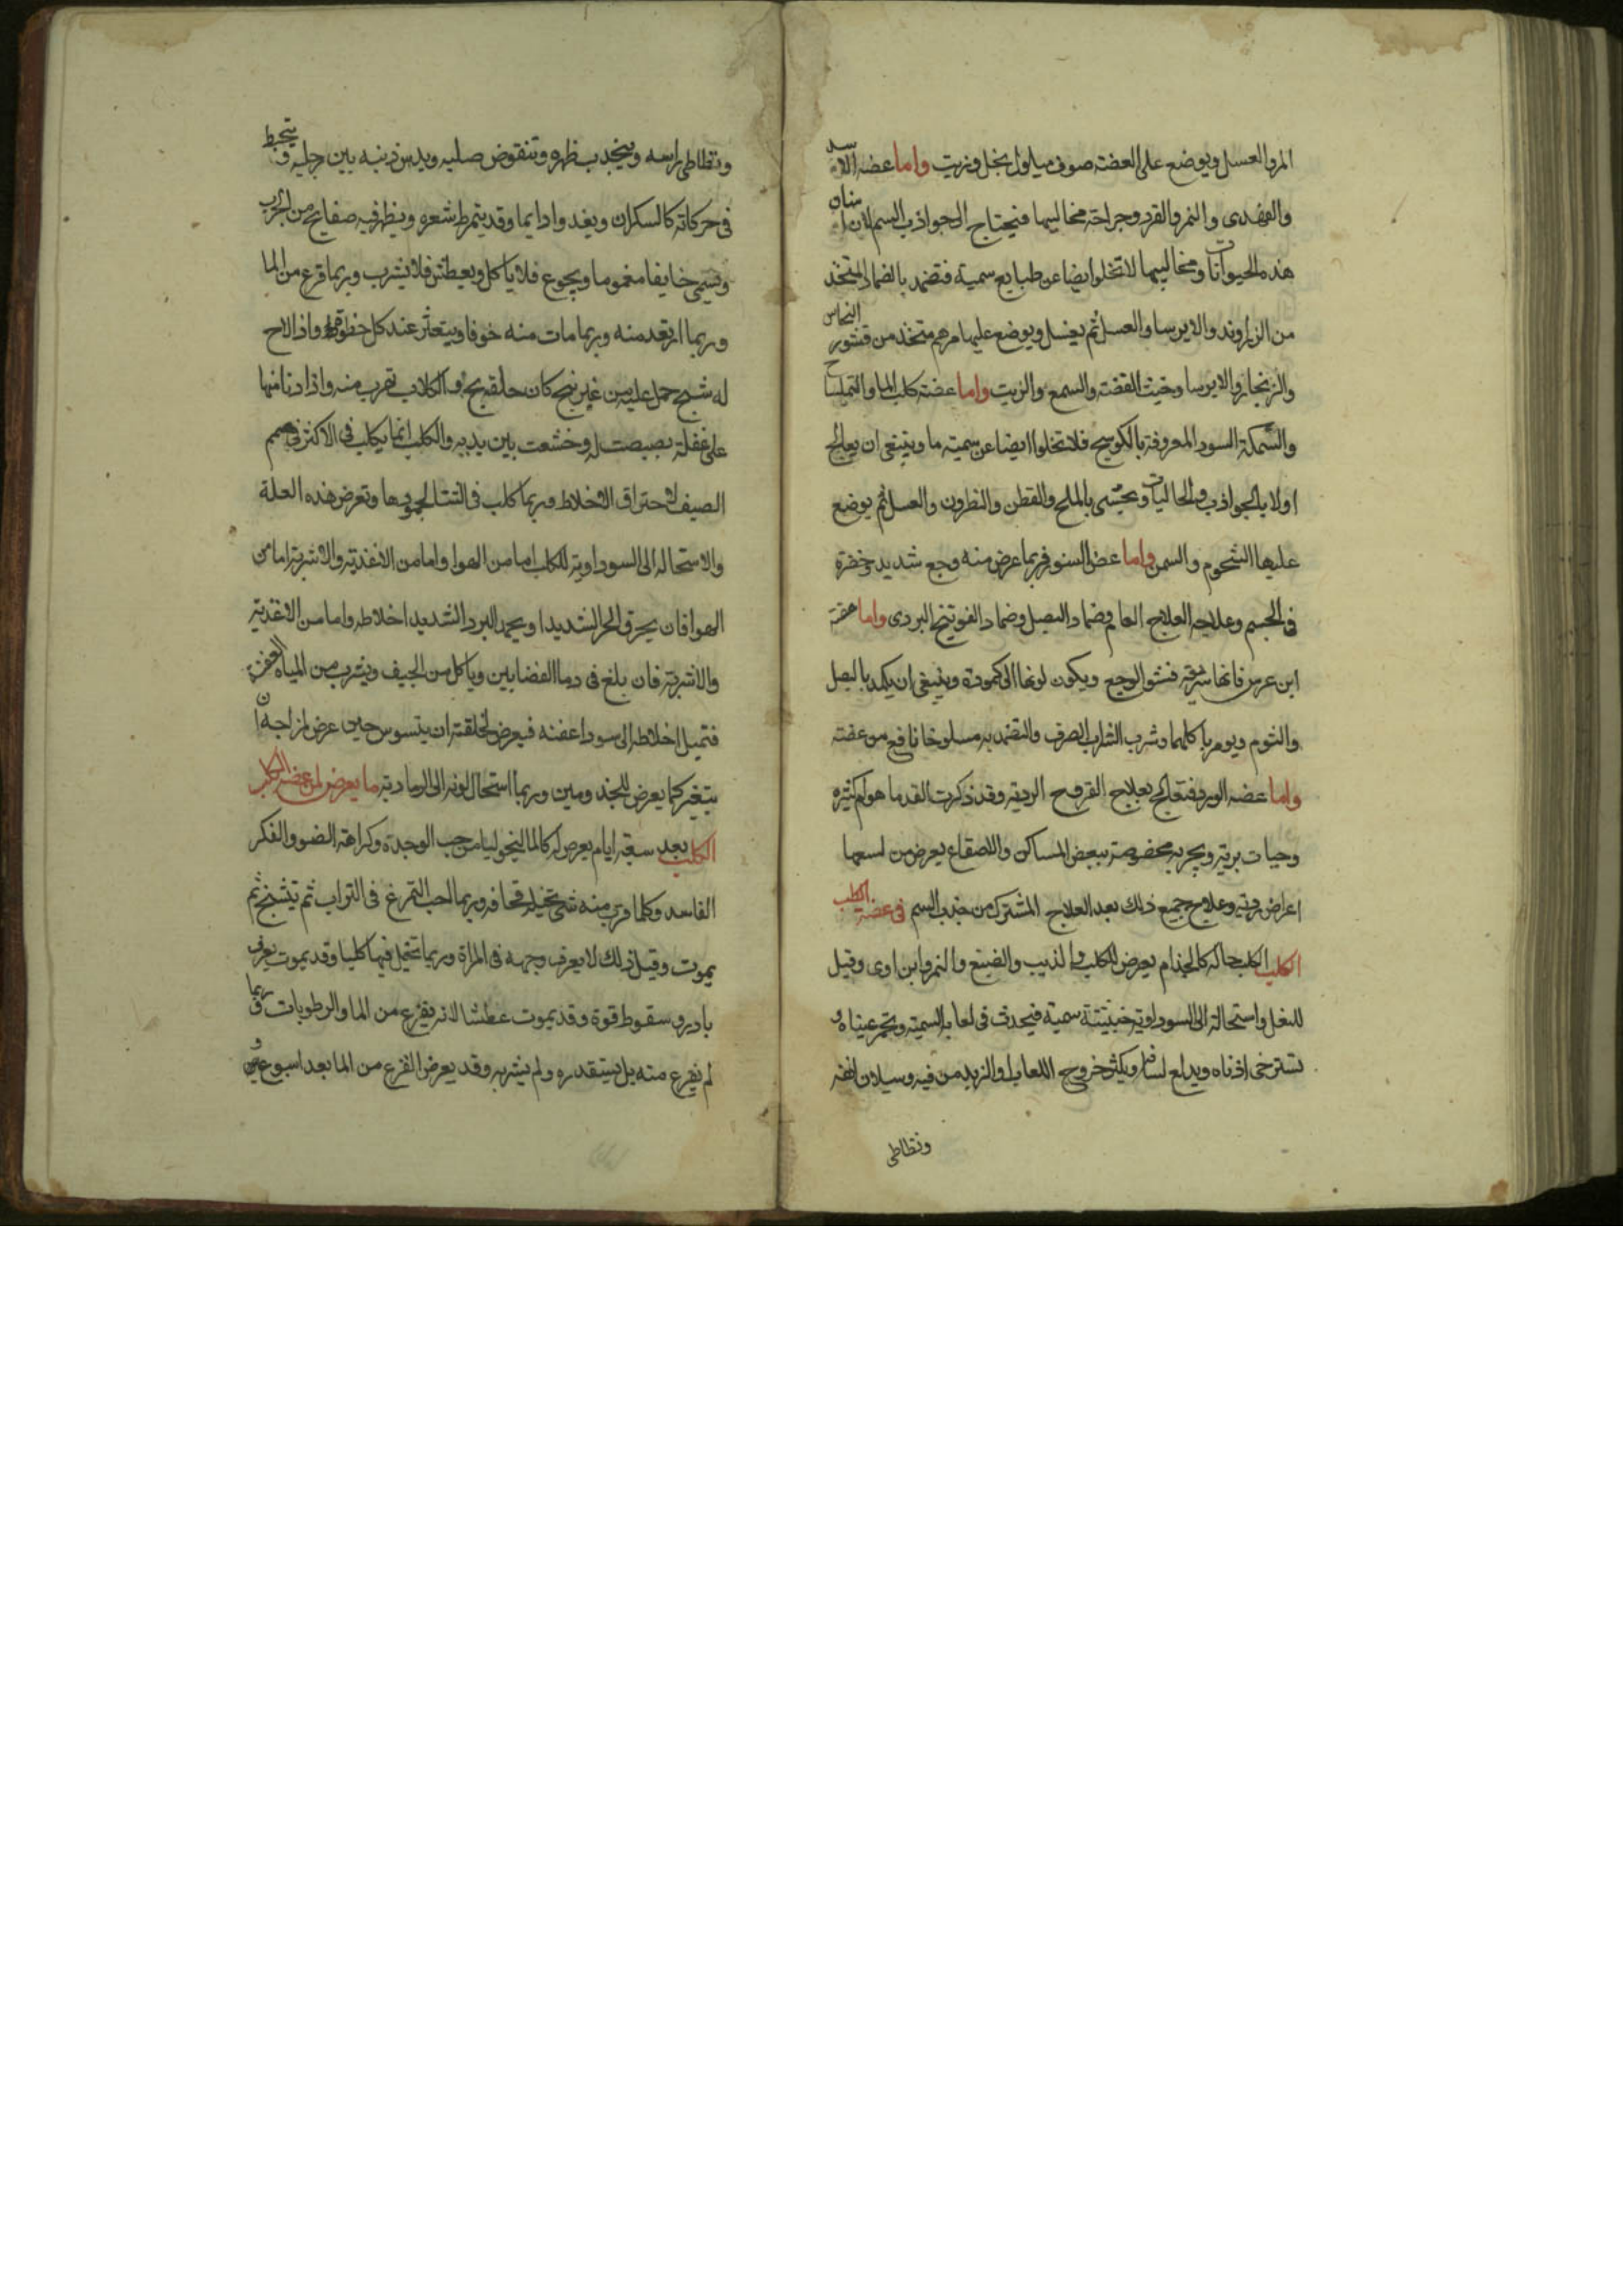 المر والعسل ويوضع على العضة صوف مبلول بخل وزيت واما عضه الاسد
والفهدى والنمر والقرد وجراحة مخاليبها فيحتاج الى جواذب السم لان اسنان
هذه الحيوانات ومخاليبها لا تخلوا ايضا عن طبايع سمية فتضمد بالضماد المتخذ
من الزراوند والايرسا والعسل ثم يغسل ويوضع عليها مرهم متخذ من قشور النحاس
والزنجار والايرسا وخبث الفضة والسمع والزيت واما عضة كلب الما والتمساح
والسمكة السودا المعروفة بالكوسج فلا تخلوا ايضا عن سمية ما وينبغى ان يعالج
اولا بالجواذب والجاليات ويحشى بالملح والقطن والنطرون والعسل ثم يوضع
عليها الشحوم والسمن واما عض السنور فربما عرض منه وجع شديد وخضرة
فى الجسم وعلاجه العلاج العام وضماد البصل وضماد الفوتنج البردى واما عضة
ابن عرس فانها سرقة فشو الوجع ويكون لونها الى كمودة وينبغى ان يكمد بالبصل
والثوم ويومر باكلهما وشرب الشراب الصرف والتضمد به مسلوخا نافع من عضته
واما عضه الورد فتعالج بعلاج القروح الرديه وقد ذكرت القدما هوام كثيره
وحيات بريه وبحريه مخصوصة ببعض المساكن والاصقاع يعرض من لسعها
اعراض رديه وعلاج جميع ذلك بعد العلاج المشترك من جذب السم فى عضة الكلب
الكلب الكلب حاله كالجذام يعرض للكلب والذيب والضبع والنمر وابن اوى وقيل
للبغل واستحالة الى السوداوية خبيثة سمية فيحدث فى لعابه السمية ويحمر عيناه و
تسترخى اذناه ويدلع لسانه ويكثر خروج اللعاب والزبد من فيه وسيلان انفه
ونطاطى
ونطاطى راسه وينجدب ظهره وتنقوض صلبه ويدس ذنبه بين رجليه و يتخبط
فى حركاته كالسكران ويغدوا دايما وقد يتمرط شعره ويظهر فيه صفايح من الجرب
ويمشى خايفا مغموما ويجوع فلا ياكل ويعطش فلا يشرب وربما فزع من الما
وربما ارتعد منه وربما مات منه خوفا ويتعثر عند كل خطوة واذا لاح
له شبح حمل عليه من غير نبح كان حلقه بح والكلاب تهرب منه واذا دنا منها
على غفلة بصبصت له وخشعت بين يديه والكلب انما يكلب فى الاكثر فى صميم
الصيف لاحتراق الاخلاط وربما كلب فى الشتا لجمودها وتعرض هذه العلة
والاستحاله الى السوداوية للكلب اما من الهوا واما من الاغذية والاشربة اما من
الهوا فان يحرق الحر الشديد او يجمد البرد الشديد اخلاطه واما من الاغذية
والاشربة فان بلغ فى دما القصابين وياكل من الجيف ويشرب من المياه العفنة
فتميل اخلاطه الى سودا عفنه فيعرض لخلقته ان يتسوس حين عرض لمزاجه ان
يتغير كما يعرض للمجذومين وربما استحال لونه الى الرمادية ما يعرض لمن عضه الكلب
الكلب بعد سبعة ايام يعرض له كالمالنيخوليا من حب الوحدة وكراهة الضو والفكر
الفاسد وكلما قرب منه شى تخيله فخافه وربما احب التمرغ فى التراب ثم تتشنج ثم
يموت وقيل ذلك لا يعرف وجهه فى المراة وربما تخيل فيها كلبا وقد يموت بعرق
بادر وسقوط قوة وقد يموت عطشا لانه يفزع من الما والرطوبات وربما
لم يفزع منه بل يستقدره ولم يشربه وقد يعرض الفزع من الما بعد اسبوعين و